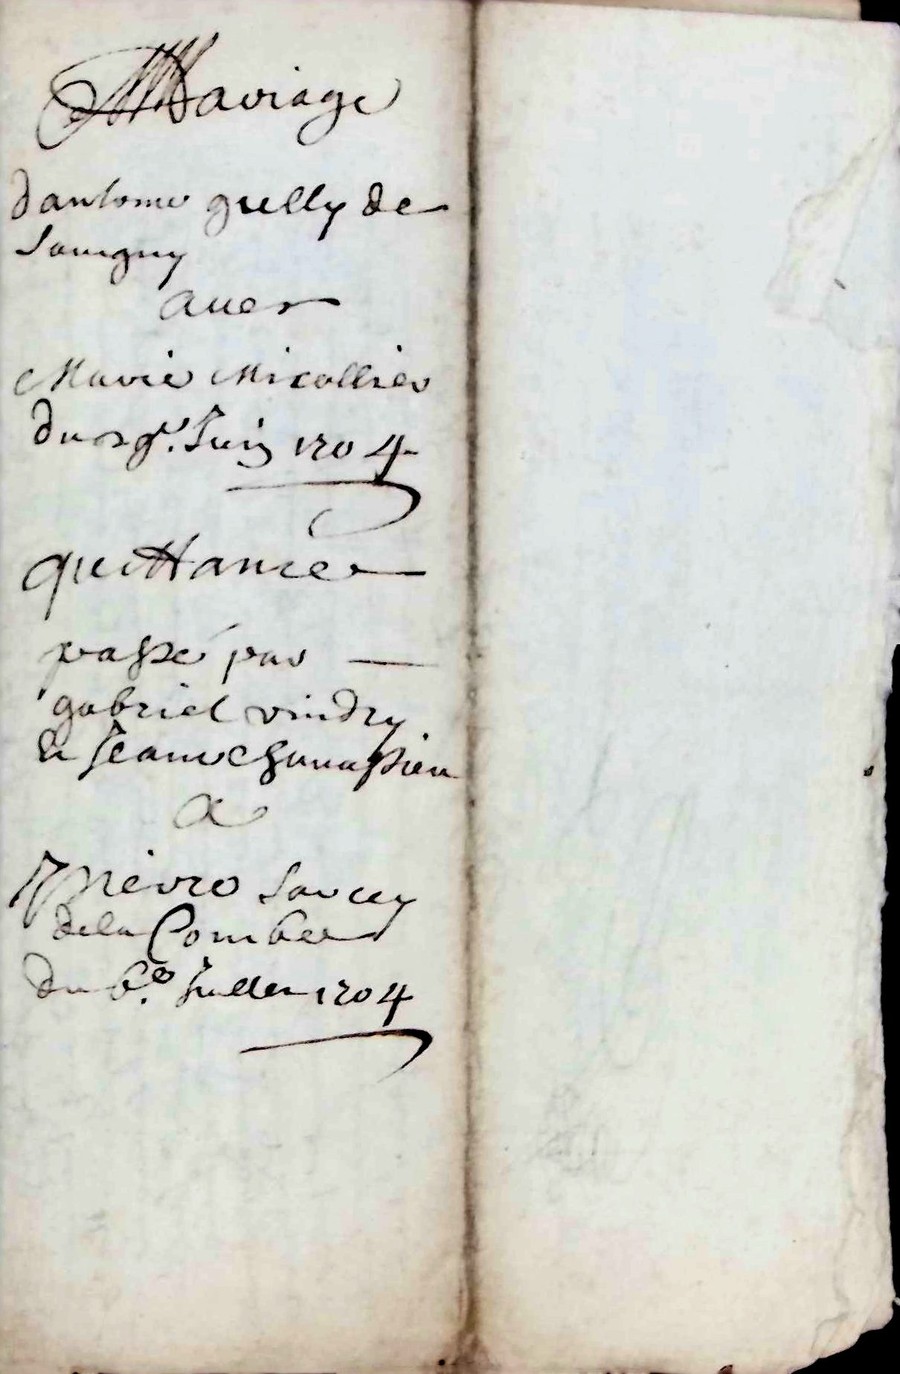 Mariage
dantoine grelly de
Sauigny
auec
Marie Micollier
du 29e. Juin 1704
quittance
passé par
gabriel vindry
et Jean chauassieu
a
Pierre Sarcey
dela Combe
du 6e. Juillet 1704